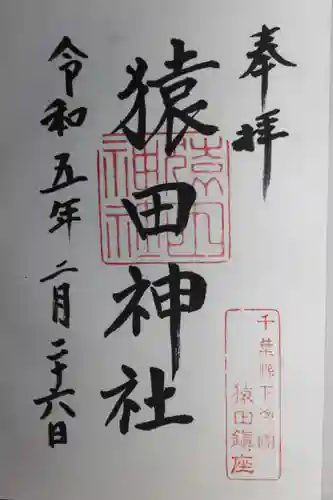 奉拝
千葉県下海岡
猿田鎮座
猿田神社
猿田神社
令和五年二月二十六日